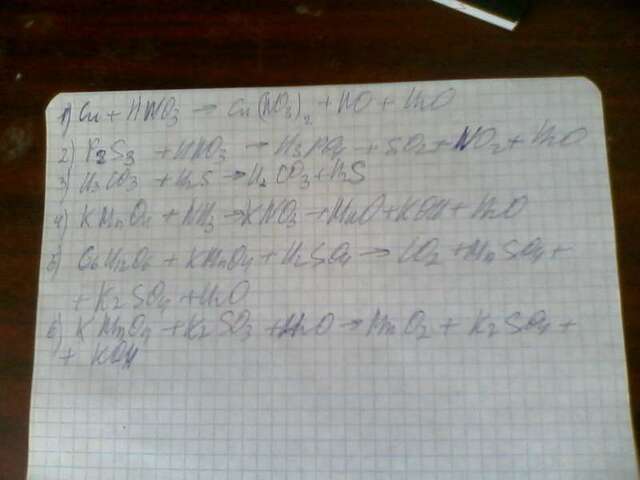 1) Cu + HNO3 → Cu(NO3)2 + NO + H2O
2) P2S3 + HNO3 → H3PO4 + SO2 + NO2 + H2O
3) H3CO3 + H2S → H2CO3 + H2S
4) KMnO4 + NH3 → KNO3 + MnO + KOH + H2O
5) C6H12O6 + KMnO4 + H2SO4 → CO2 + MnSO4 +
+ K2SO4 + H2O
6) KMnO4 + K2SO3 + H2O → MnO2 + K2SO4 +
+ KOH